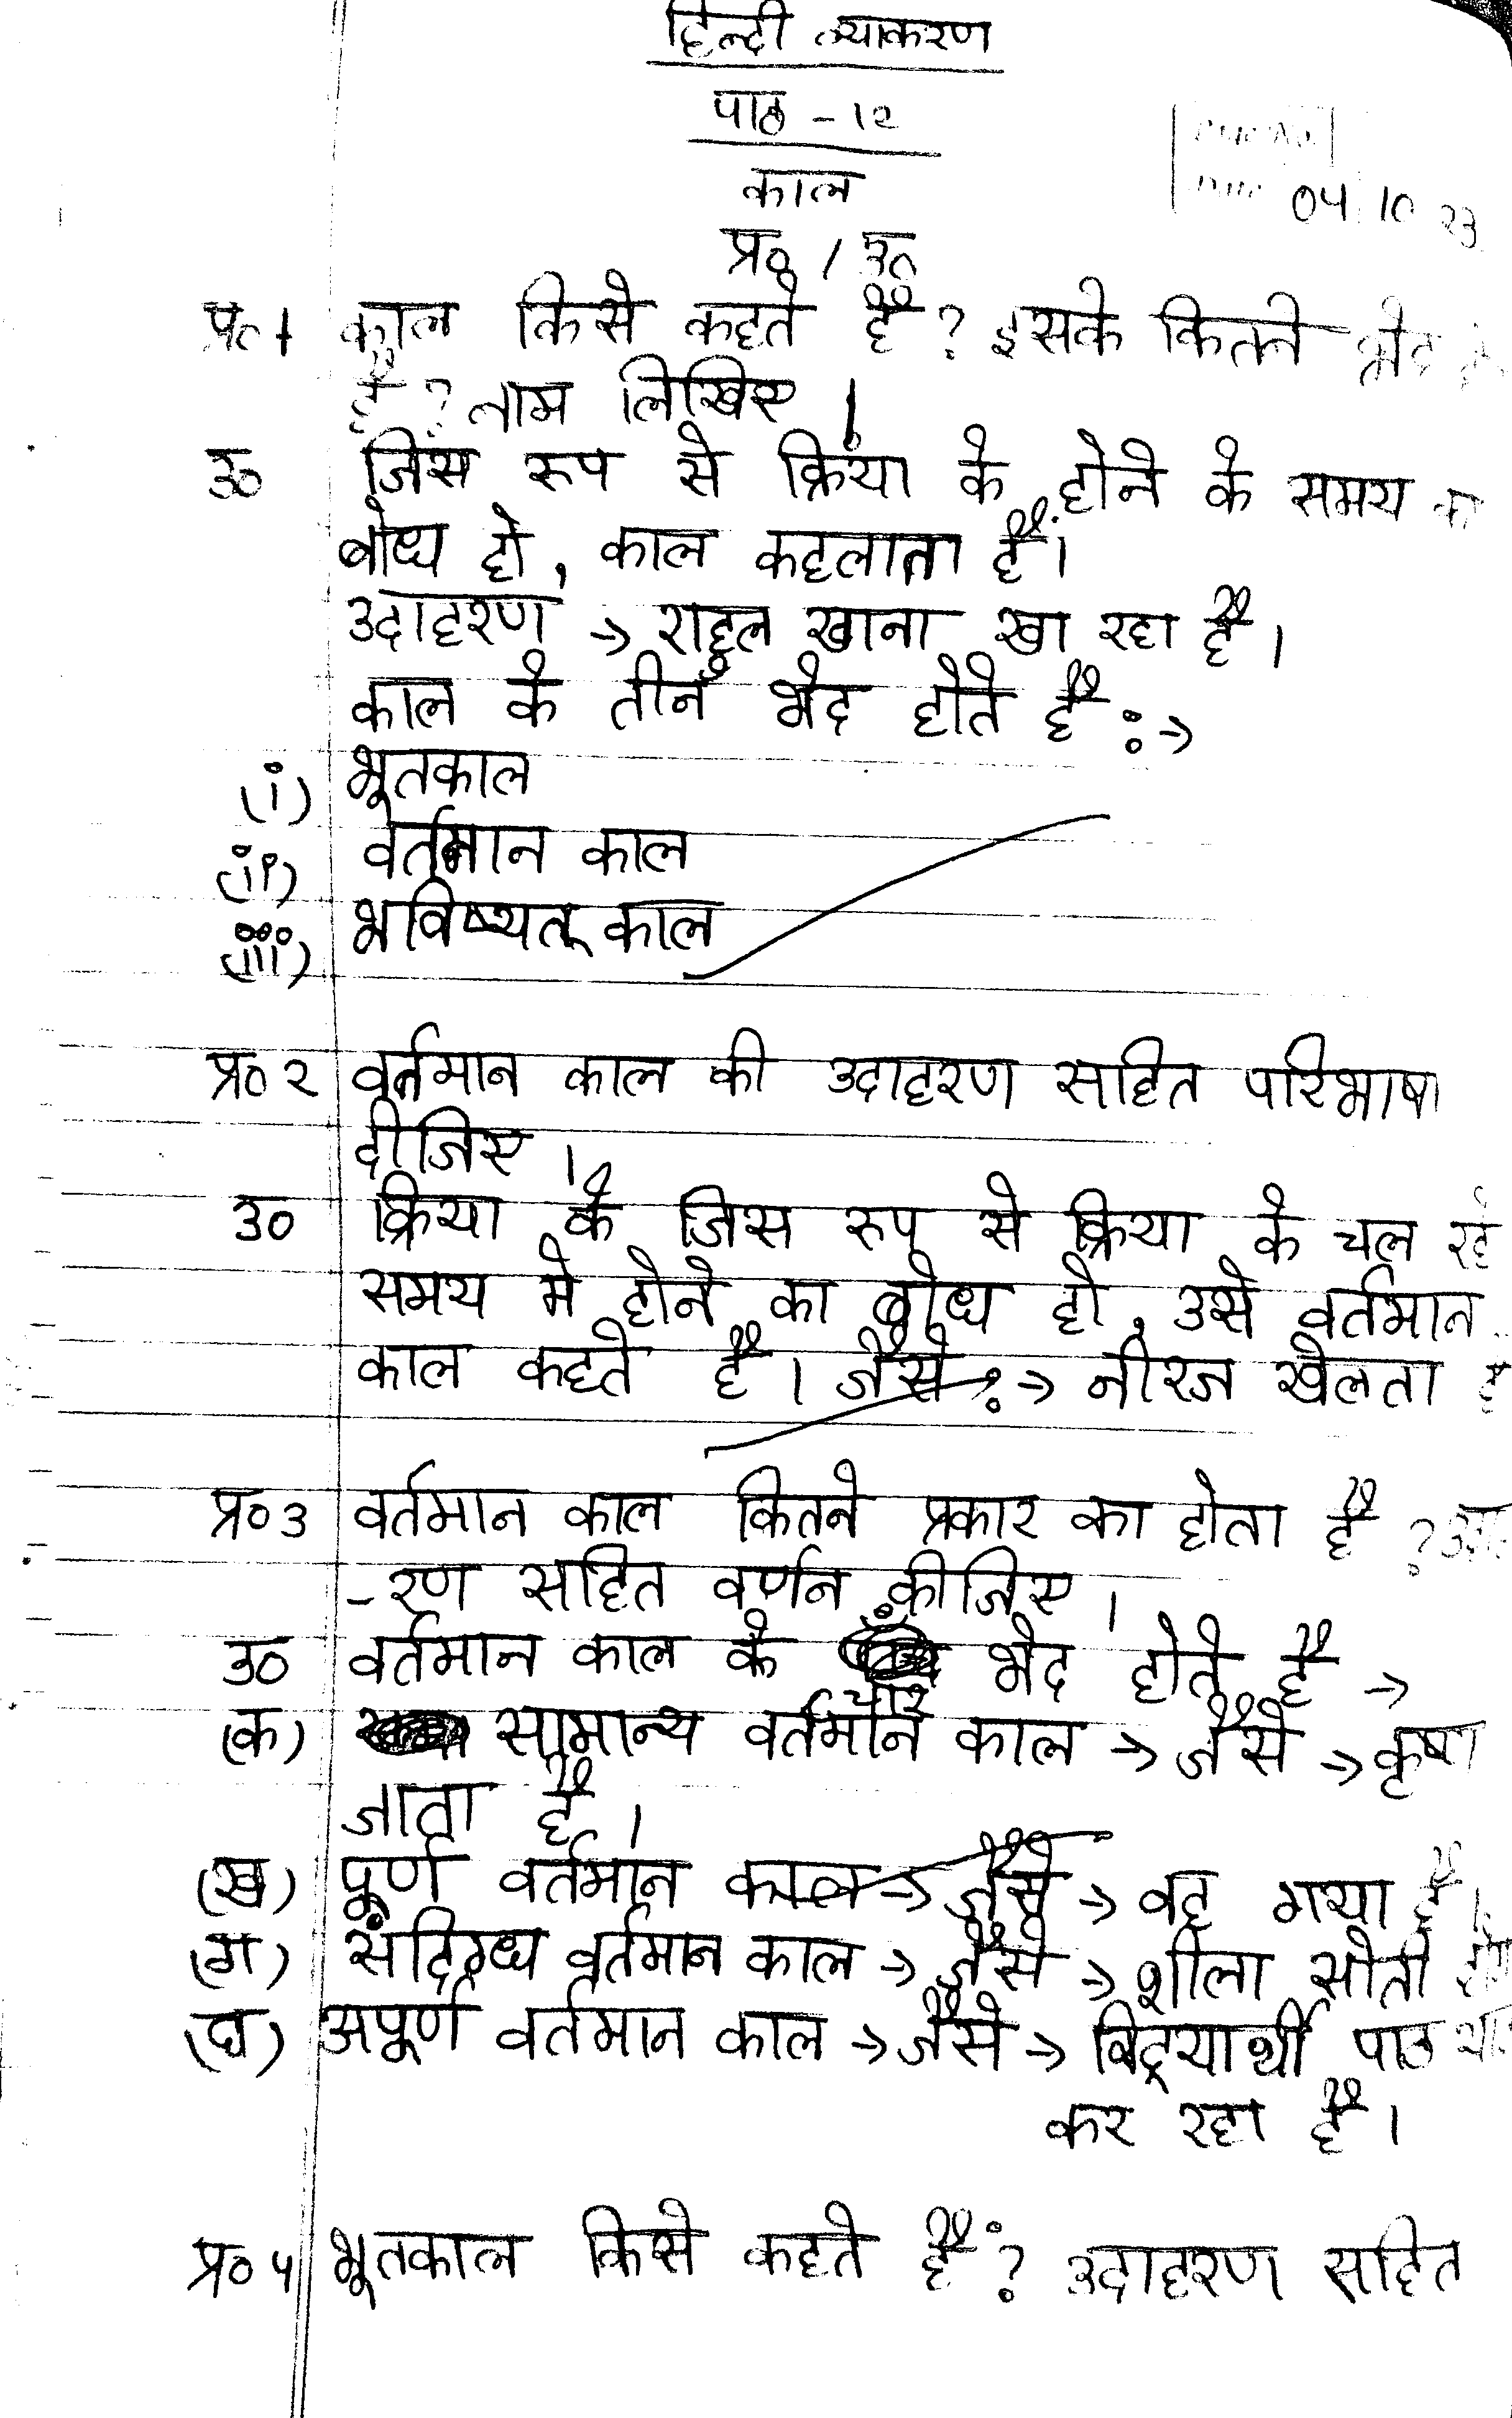 हिन्दी व्याकरण
पाठ - 12
काल
04 10 23
प्र० / उ०
प्र० 1 काल किसे कहते है? इसके कितने भेद
है? नाम लिखिए।
उ० जिस रूप से क्रिया के होने के समय का
बोध हो, काल कहलाता है।
उदाहरण → राहुल खाना खा रहा है।
काल के तीन भेद होते है :→
(i) भूतकाल
(ii) वर्तमान काल
(iii) भविष्यत् काल
प्र० 2 वर्तमान काल की उदाहरण सहित परिभाषा
दीजिए।
उ० क्रिया के जिस रूप से क्रिया के चल रहे
समय मे होने का बोध हो, उसे वर्तमान
काल कहते है। जैसे :→ नीरज खेलता है
प्र० 3 वर्तमान काल कितने प्रकार का होता है ?
-रण सहित वर्णन कीजिए।
उ० वर्तमान काल के चार भेद होते है →
(क) सामान्य वर्तमान काल → जैसे → कृष्ण
जाता है।
(ख) पूर्ण वर्तमान काल → जैसे → वह गया है।
(ग) संदिग्ध वर्तमान काल → जैसे → शीला सोती
(घ) अपूर्ण वर्तमान काल → जैसे → विद्यार्थी पाठ
कर रहा है।
प्र० 4 भूतकाल किसे कहते हैं? उदाहरण सहित